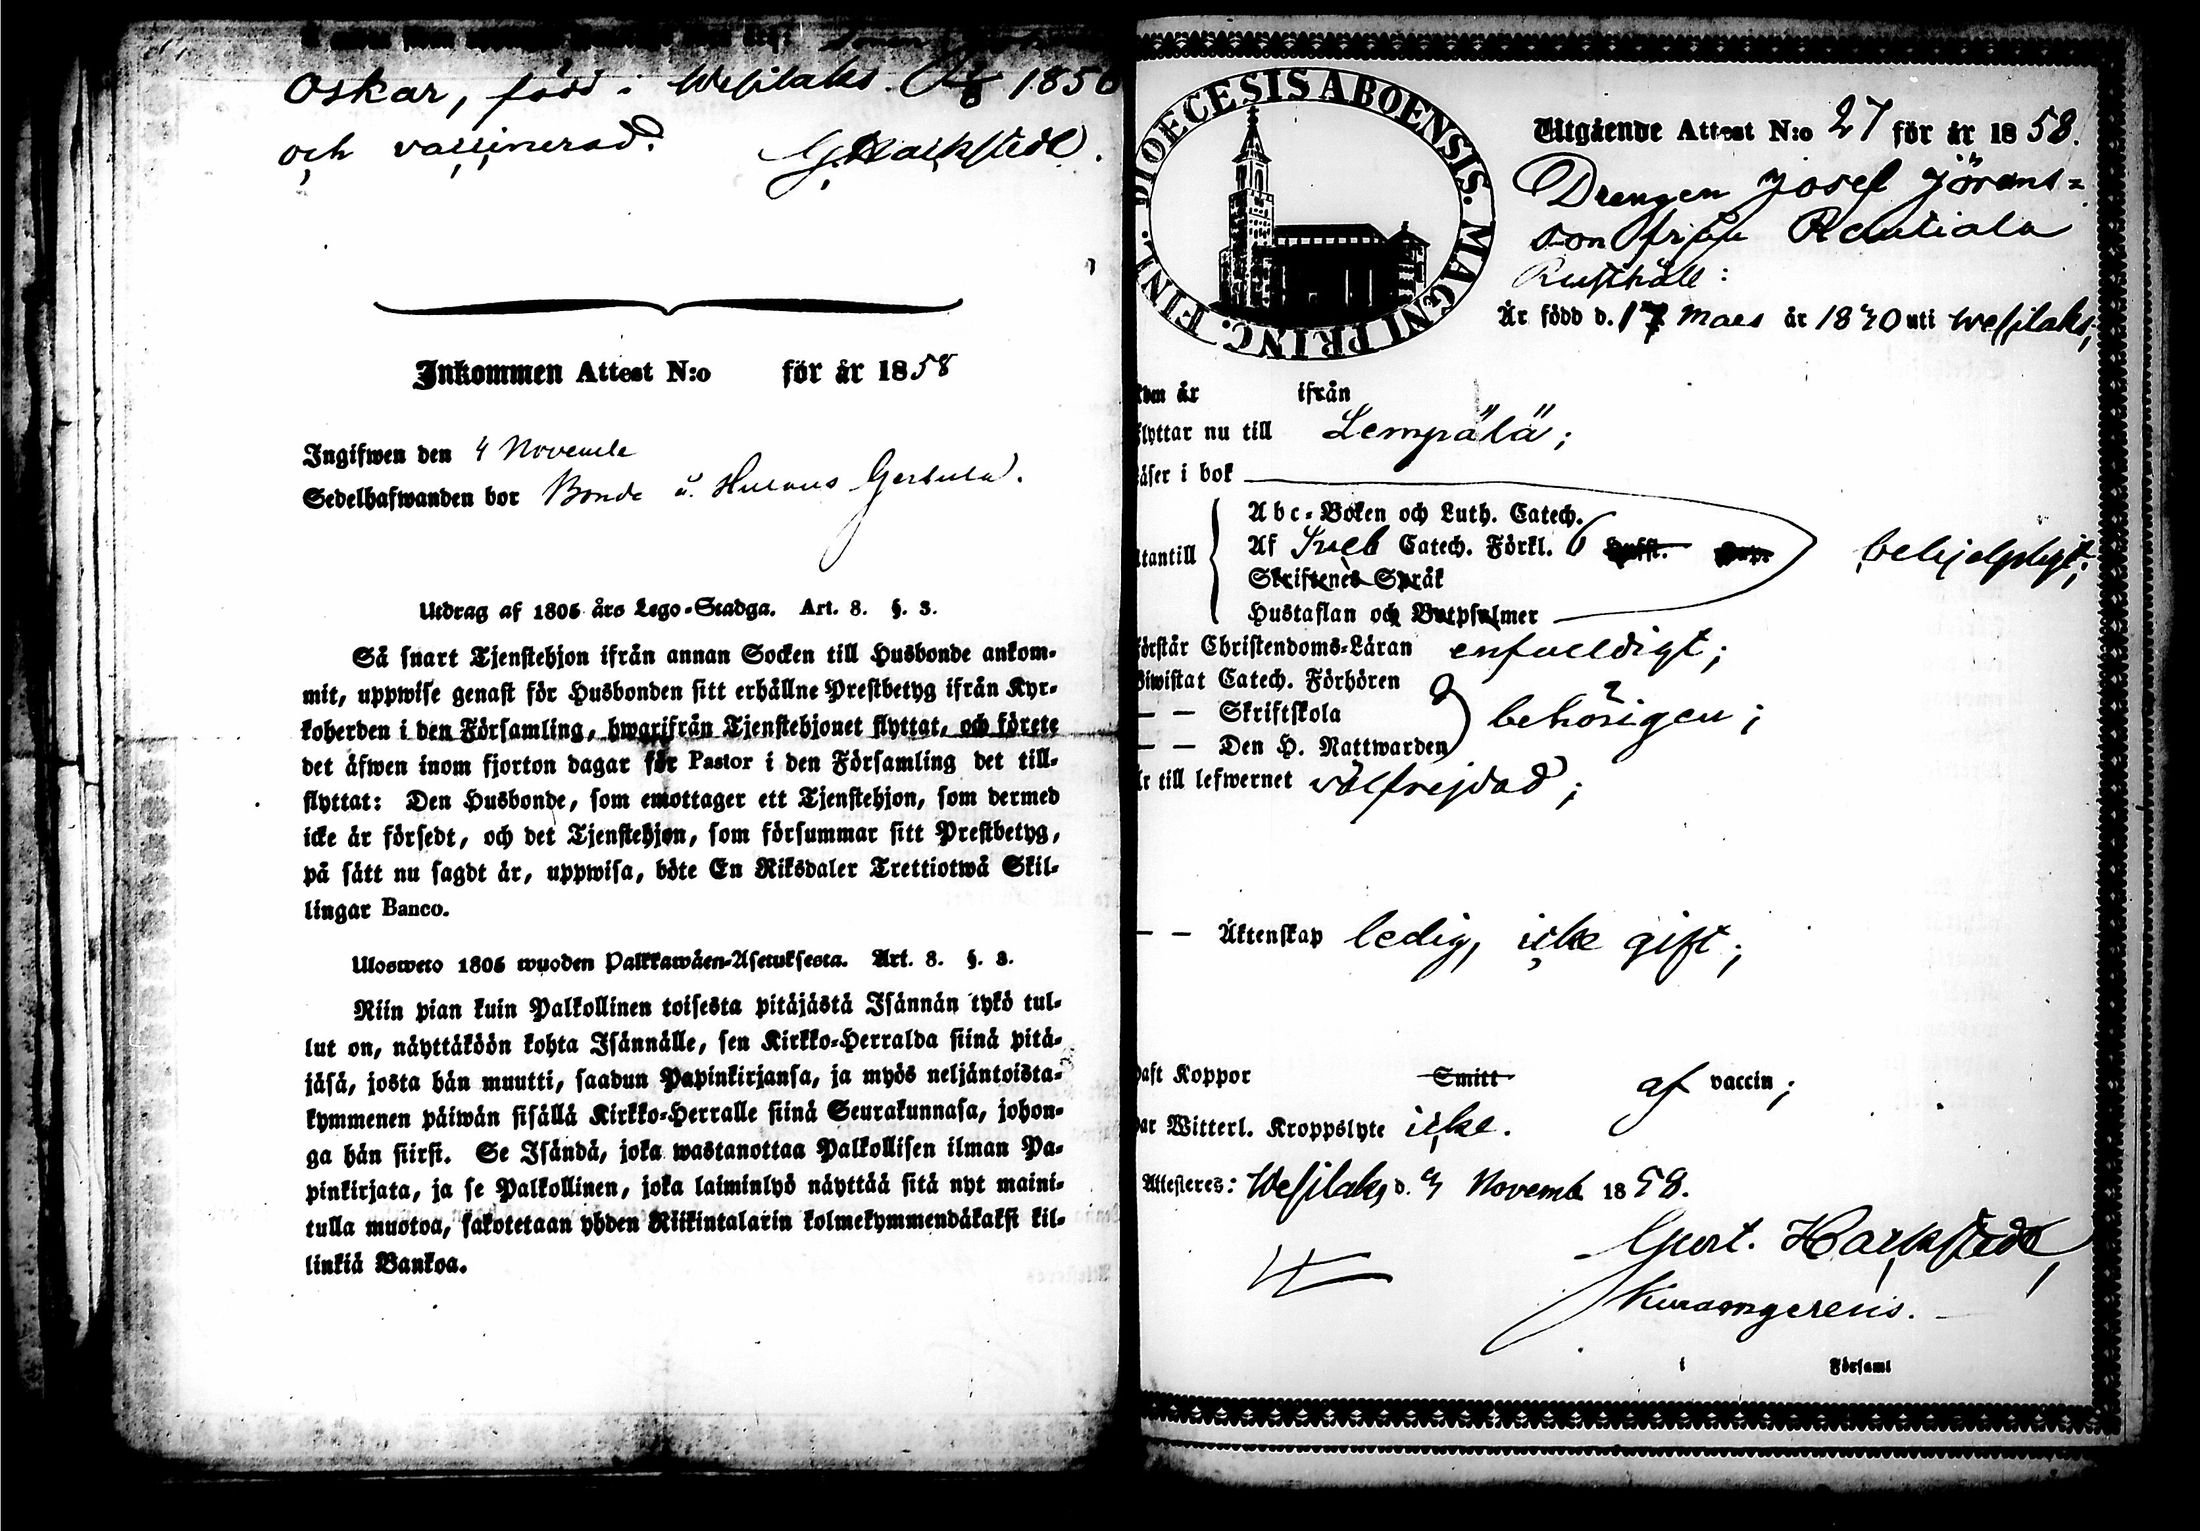 Oskar, född i Wesilaks 1856
och vaccinerad. G. Hackstedt.
Inkommen Attest N:o för år 1858
Ingifwen den 4 Novemb
Sedelhafwanden bor Bonde
Utdrag af 1805 års Lego-Stadga. Art. 8. §. 3.
Så snart Tjenstehjon ifrån annan Socken till Husbonde ankom-
mit, uppwise genast för Husbonden sitt erhållne Prestbetyg ifrån Kyr-
koherden i den Församling, hwarifrån Tjenstehjonet flyttat, och förete
det äfwen inom fjorton dagar för Pastor i den Församling det till-
flyttat: Den Husbonde, som emottager ett Tjenstehjon, som dermed
icke är försedt, och det Tjenstehjon, som försummar sitt Prestbetyg,
på sätt nu sagdt är, uppwisa, böte En Riksdaler Trettiotwå Skil-
lingar Banco.
Ulosweto 1805 wuoden Palkkawäen-Asetuksesta. Art. 8. §. 3.
Niin pian kuin Palkollinen toisesta pitäjästä Isännän tykö tul-
lut on, näyttäköön kohta Isännälle, sen Kirkko-Herralda siinä pitä-
jäsä, josta hän muutti, saadun Papinkirjansa, ja myös neljäntoista-
kymmenen päiwän sisällä Kirkko-Herralle siinä Seurakunnasa, johon-
ga hän siirsi. Se Isändä, joka wastanottaa Palkollisen ilman Pa-
pinkirjata, ja se Palkollinen, joka laiminlyö näyttää sitä nyt maini-
tulla muotoa, sakotetaan yhden Riikintalarin kolmekymmendäkaksi kil-
linkiä Bankoa.
DIOECESIS ABOENSIS. MAGNI PRINC. FINL.
Utgående Attest N:o 27 för år 1858.
Drengen Josef Jörans-
son ifrån Rautiala
Rusthåll:
Är född d. 17 Mars år 1840 uti Wesilaks,
är ifrån
flyttar nu till Lempälä;
läser i bok
Abc-Boken och Luth. Catech.
utantill Af Sveb Catech. Förkl. behjelpligt;
Skriftenes Språk
Hustaflan och Botpsalmer
förstår Christendoms-Läran enfaldigt;
Biwistat Catech. Förhören
— — Skriftskola behörigen;
— — Den H. Nattwarden
är till lefwernet välfrejdad;
— — Äktenskap ledig, icke gift;
haft Koppor Smitt af vaccin;
har Witterl. Kroppslyte icke.
Attesteres: Wesilaks d. 3 Novemb 1858.
Gust. Hackstedt,
Kuramgerens.
i Församl